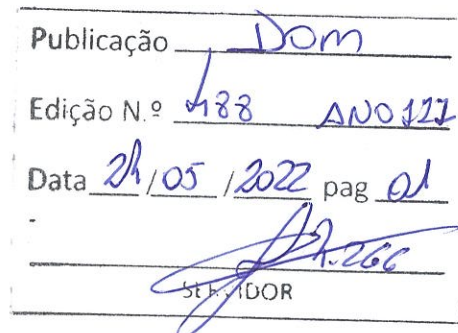 Publicação DOM
Edição N.º 488 ANO III
Data /05 /2022 pag 01
-
SERVIDOR